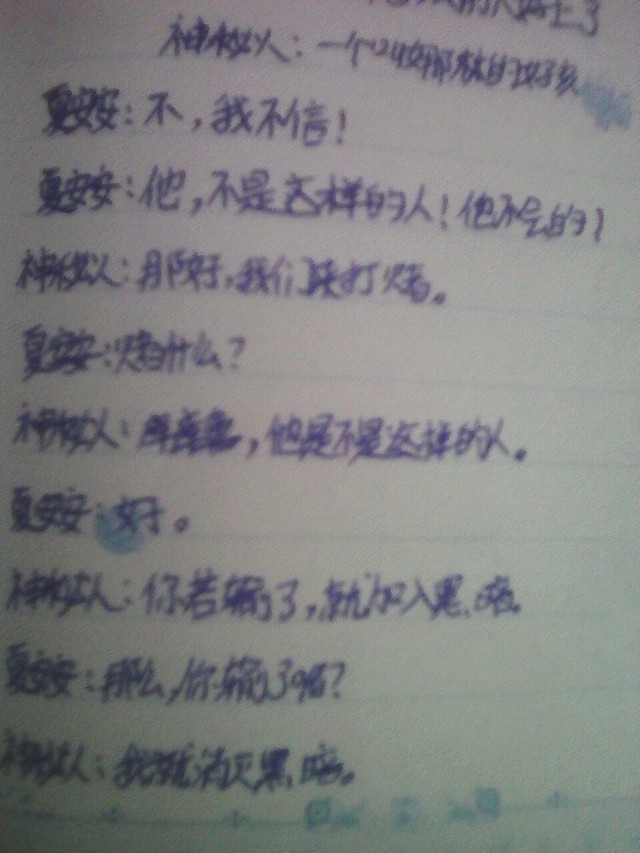 人好上了
神秘人：一个叫 的女孩
夏安安：不，我不信！
夏安安：他，不是这样的人！他不会的！
神秘人：那好，我们来打赌。
夏安安：赌什么？
神秘人： ，他是不是这样的人。
夏安安：好。
神秘人：你若输了，就加入黑暗。
夏安安：那么，你输了呢？
神秘人：我就消灭黑暗。